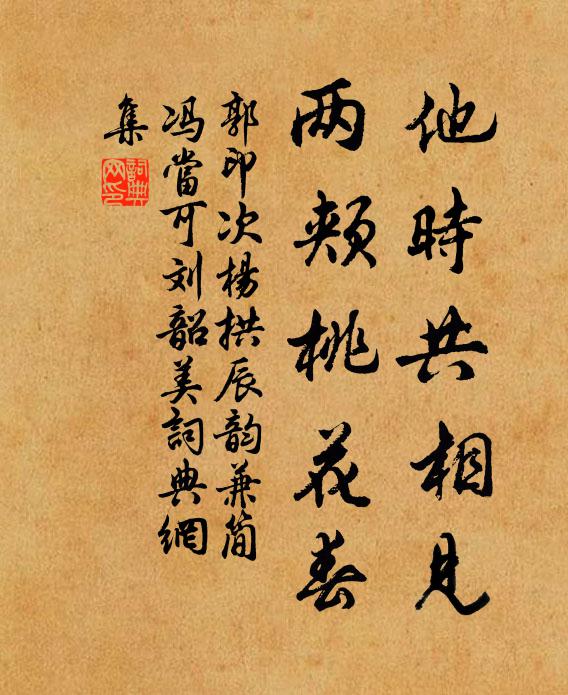 他時共相見
两頰桃花春
郭印次楊拱辰韵兼简
冯當可刘韶美詞典網
集
詞典网印